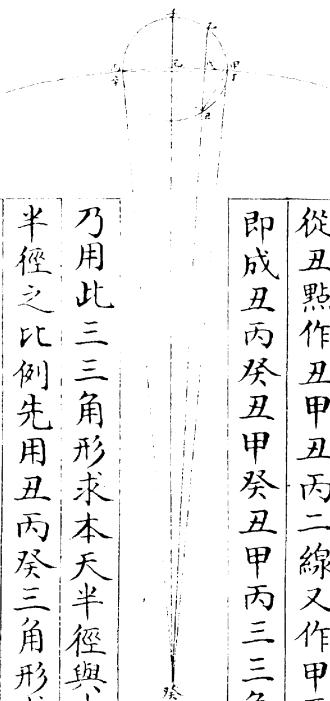 從丑點作丑甲丑丙二線又作甲
即成丑丙癸丑甲癸丑甲丙三三角
癸
乃用此三三角形求本天半徑與
半徑之比例先用丑丙癸三角形